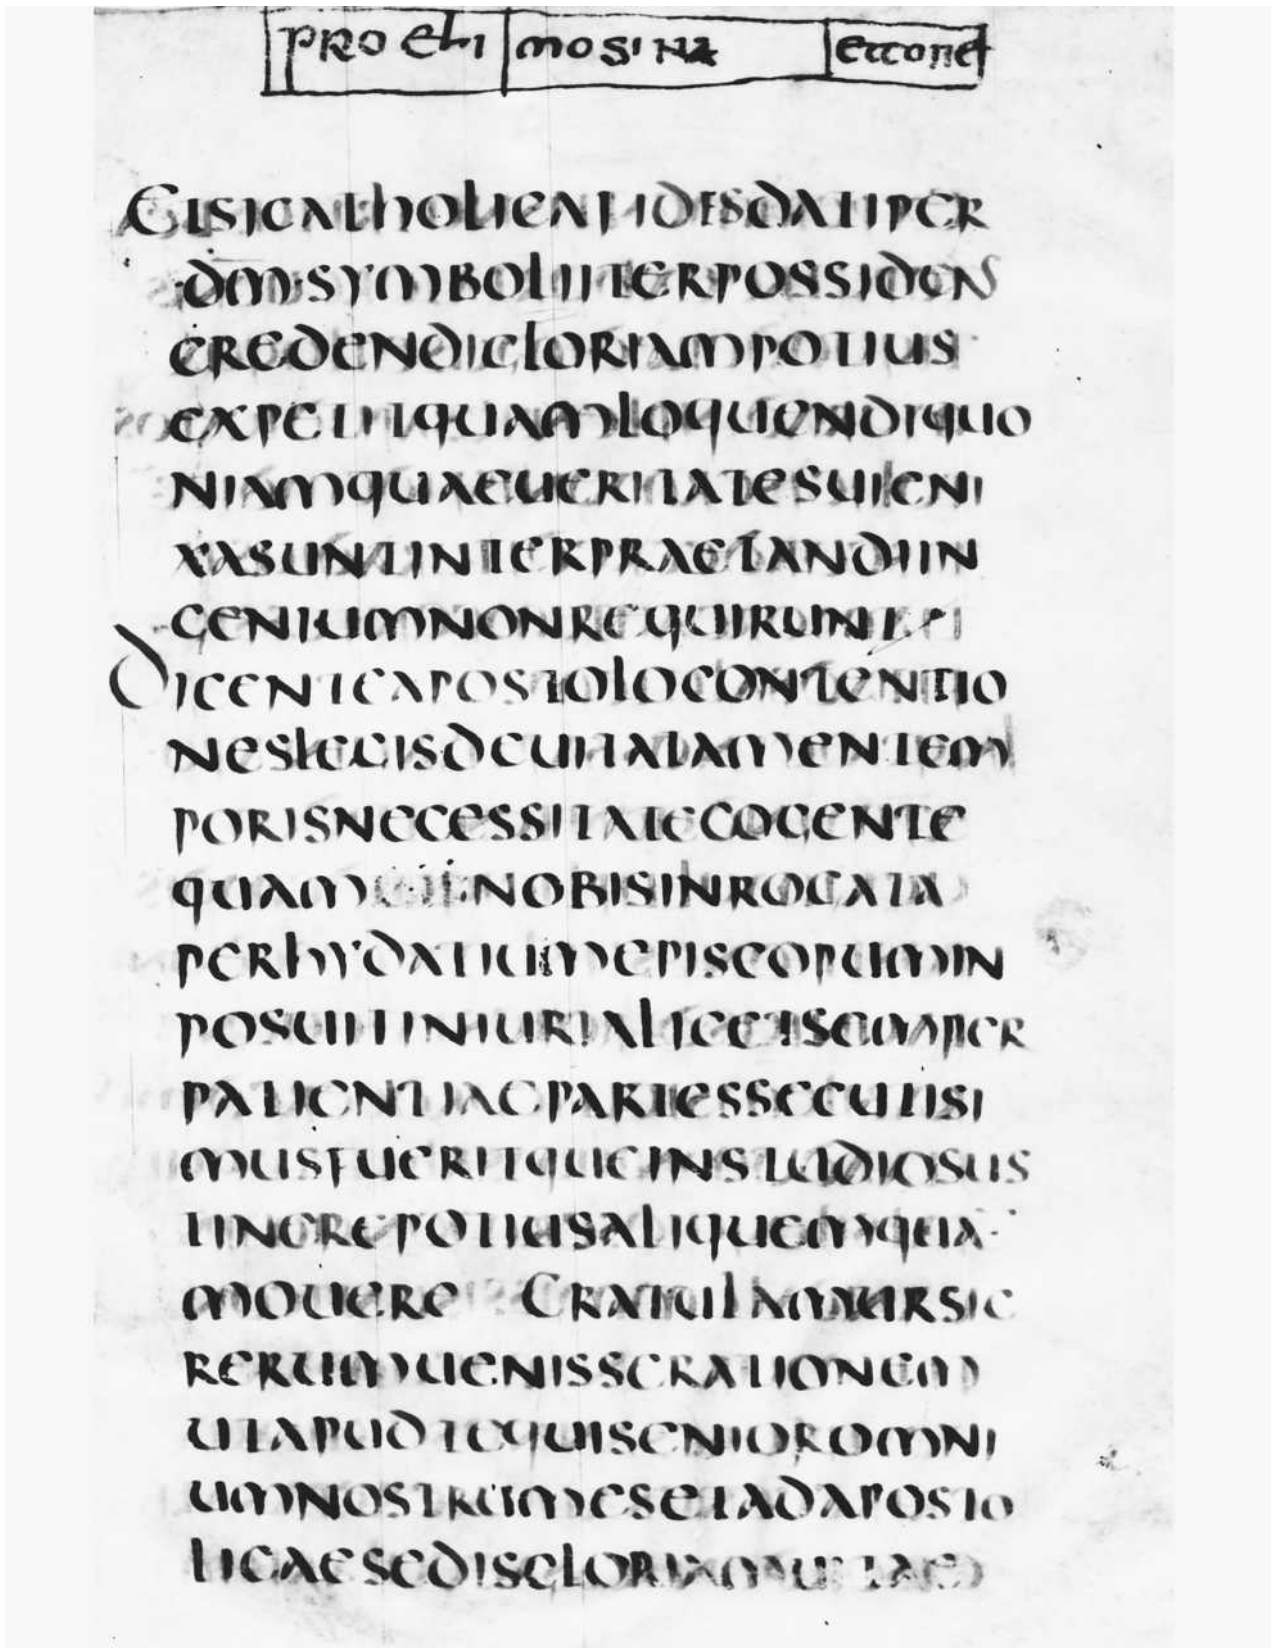 PRO ELI MOSINA ettonet
ETSICATHOLICAFIDESDATIPER
DMSYMBOLIITERPOSSIDENS
CREDENDIGLORIAMPOTIUS
EXPETITQUAMLOQUENDIQUO
NIAMQUAEUERITATESUIENI
XASUNTINTERPRAETANDIIN
GENIUMNONREQUIRUNT
DICENTEAPOSTOLOCONTENTIO
NESLEGISDEUITATAMENTEM
PORISNECESSITATECOGENTE
QUAM NOBISINROGATA
PERHYDATIUMEPISCOPUMIN
POSUITINIURIALICETSEMPER
PATIENTIAEPARTESSECUTISI
MUSFUERITQUEINSTUDIOSUS
TINEREPOTIUSALIQUEMQUA
MOUERE GRATULAMURSIC
RERUMUENISSERATIONEM
UTAPUDTEQUISENIOROMNI
UMNOSTRUMESETADAPOSTO
LICAESEDISGLORIAMUITAE